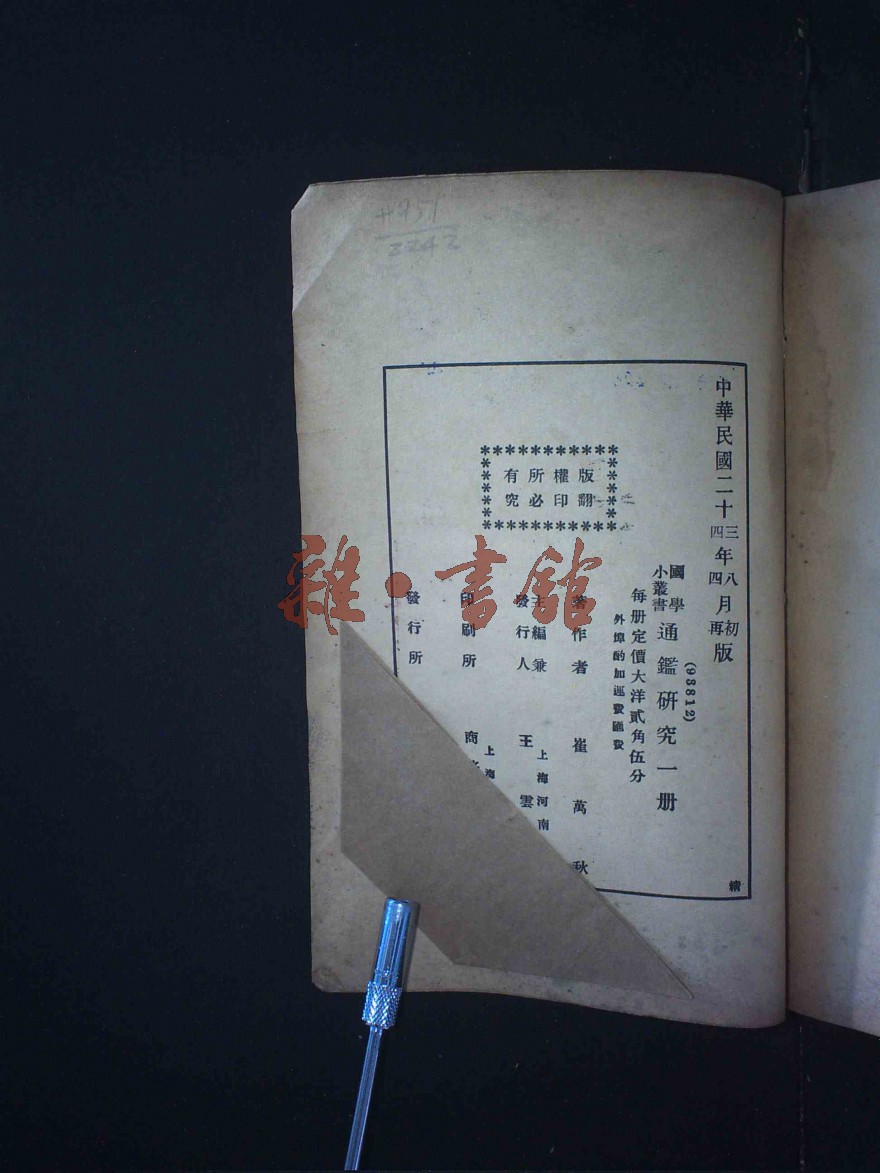 中華民國二十三年八月初版
四 四 再
(93812)
國學小叢書 通鑑研究一册
每册定價大洋貳角伍分
外埠酌加運費匯費
著作者 崔萬秋
上海河南
主編兼發行人 王雲
上海
印刷所 商
發行所
版權所有
翻印必究
續
雜·書館
2242